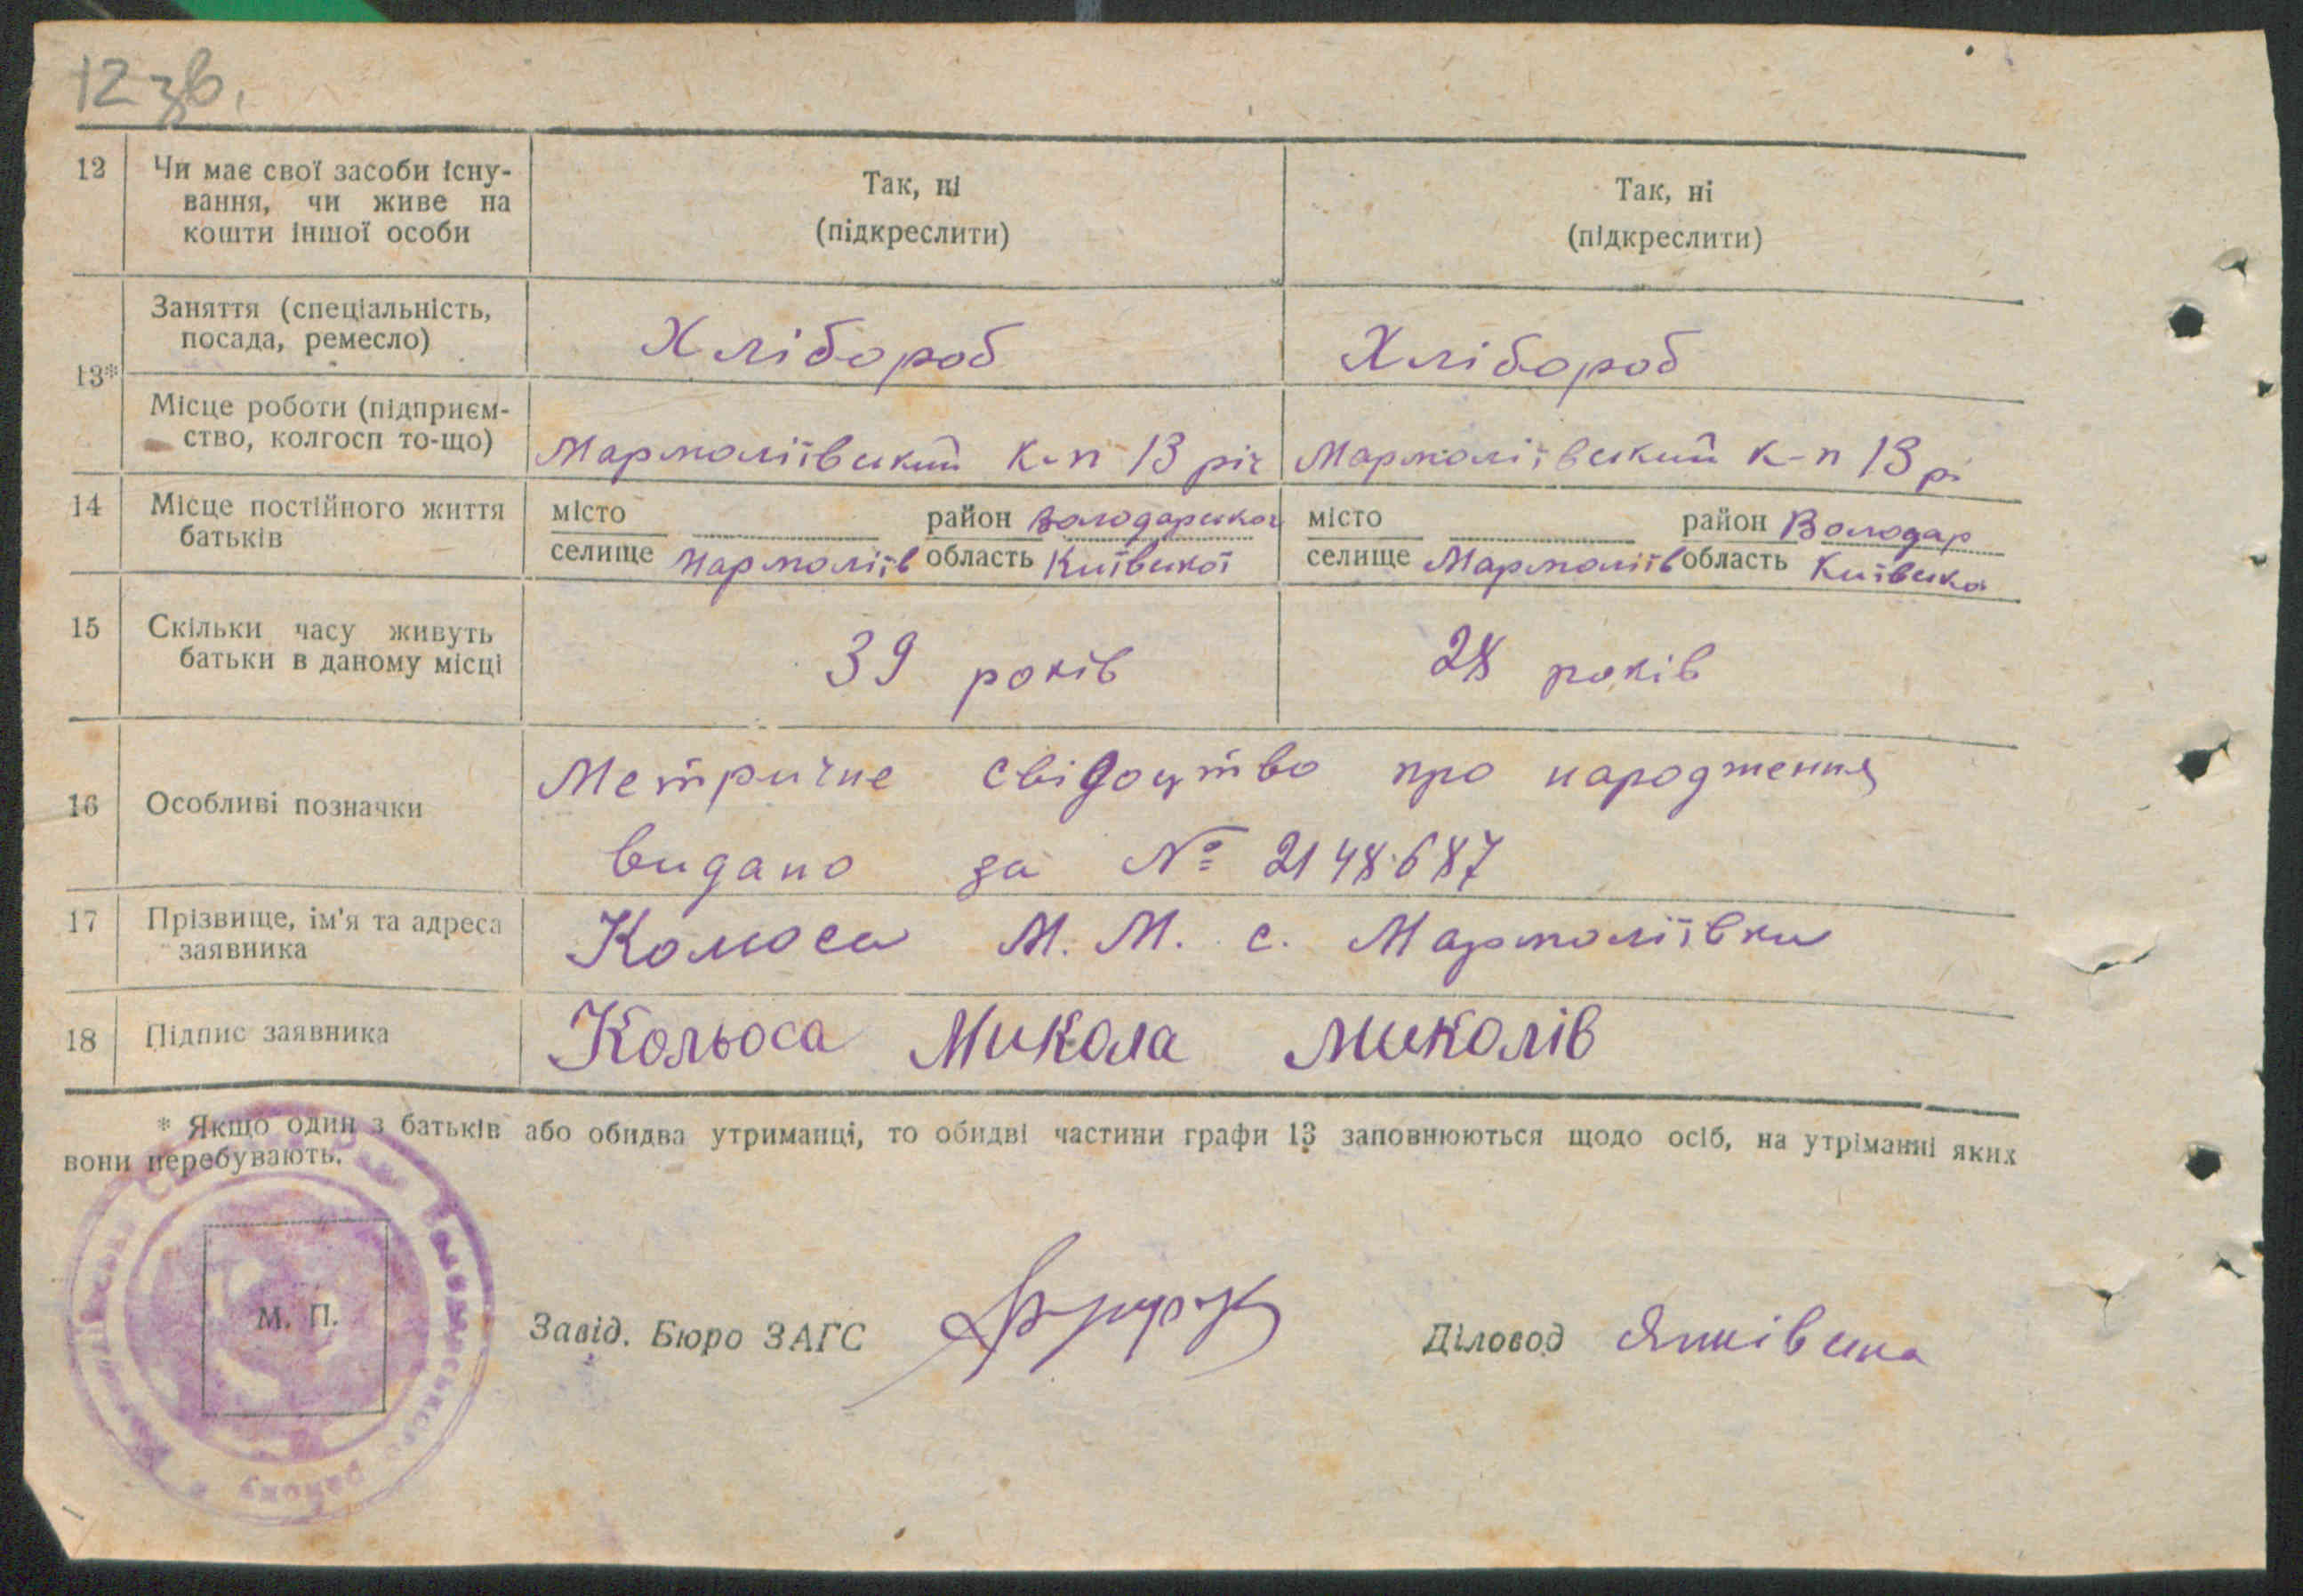 12 зв.
12 Чи має свої засоби існу-
вання, чи живе на
кошти іншої особи
Так, ні
(підкреслити)
Так, ні
(підкреслити)
13*
Заняття (спеціальність,
посада, ремесло)
Хлібороб
Хлібороб
Місце роботи (підприєм-
ство, колгосп то-що)
Мармоліївський к-п 13 річ
Мармоліївський к-п 13 рі
14 Місце постійного життя
батьків
місто район Володарської
селище Мармоліїв область Київської
місто район Володар
селище Мармоліїв область Київська
15 Скільки часу живуть
батьки в даному місці
39 років
28 років
16 Особливі позначки
Метричне свідоцтво про народження
видано за № 2148687
17 Прізвище, ім'я та адреса
заявника
Кольоса М. М. с. Мармоліївки
18 Підпис заявника
Кольоса Микола Миколів
* Якщо один з батьків або обидва утриманці, то обидві частини графи 13 заповнюються щодо осіб, на утріманні яких
вони перебувають.
М. П.
Завід. Бюро ЗАГС
Діловод